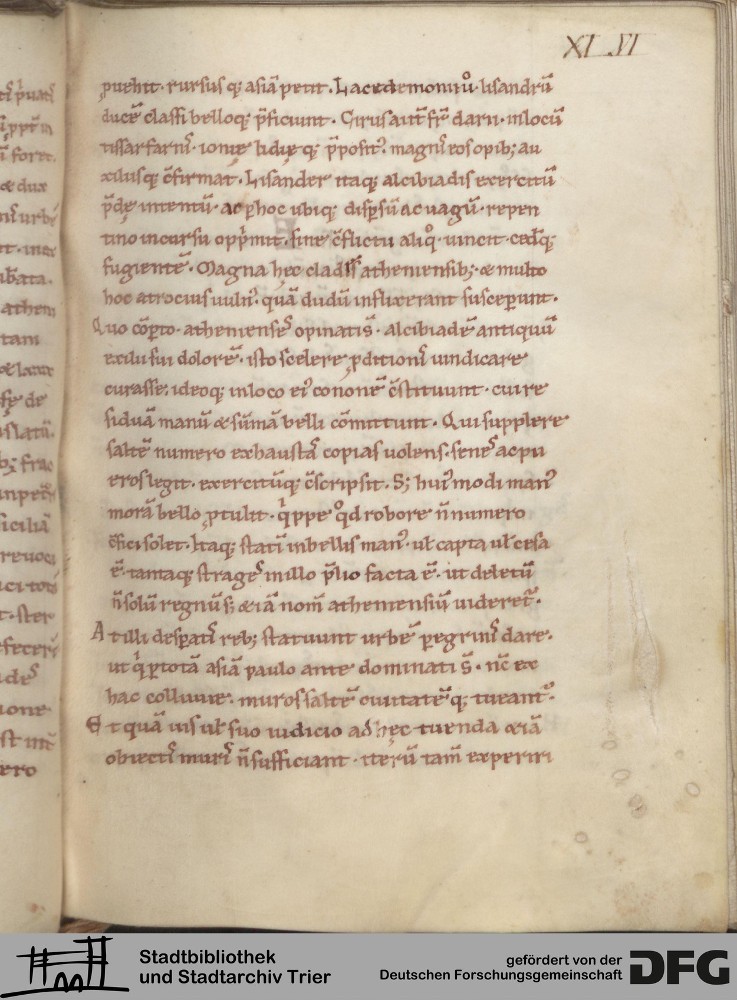 XI VI
puehit· rursus q; asiā petit. Lacedemoniů· lisandrū
ducē classi belloq; p̄ficiunt. Cirus aut̄ fr̄ darii· in locū
tissarfarni᷒· ionie lidięq; p̄posit᷒. magni᷒ eos opib; au
xiliisq; c̄firmat. Lisander itaq; alcibiadis exercitū
p̄dę intentū· ac ꝑhoc ubiq; disp̄sū ac uagū· repen
tino incursu opp̄mit. sine c̄flictu aliq̊· uincit· ced̄q;
fugientē. Magna hęc clades atheniensib; & multo
hoc atrocius uuln᷒· quā dudū inflixerant susceperunt.
Quo cōꝑto· atheniense᷒ opinati s̄· alcibiadē antiquū
exilii sui dolorē· isto scelere ꝓditioni᷒ uindicare
curasse. ideoq; in loco ei᷒ cononē c̄stituunt· cui re
siduā manū & sūmā belli cōmittunt. Qui supplere
saltē numero exhausta᷒ copias uolens· sene᷒ ac pu
eros legit· exercitūq; c̄scripsit. S; hui᷒modi man᷒
morā bello ꝓtulit· q̍ppe q̊d robore n̄ numero
c̄fici solet. Itaq; statī inbellis man᷒· ul̄ capta ul̄ cesa
ē· tamaq; strage᷒ in illo p̄lio facta ē· ut deletū
n̄ solū regnū s; & iā nom̄ atheniensiū uideret᷒.
At illi desꝑati᷒ reb; statuunt urbē ꝑegrini᷒ dare.
ut q̍ ꝑ totā asiā paulo ante dominati s̄· nc̄ ex
hac colluuie· muros saltē ciuitatēq; tueant᷒.
Et quā uis ul̄ suo iudicio ad hęc tuenda & iā
obiecti᷒ muri᷒ n̄ sufficiant· iterū tam̄ experiri
Stadtbibliothek
und Stadtarchiv Trier
gefördert von der
Deutschen Forschungsgemeinschaft
DFG